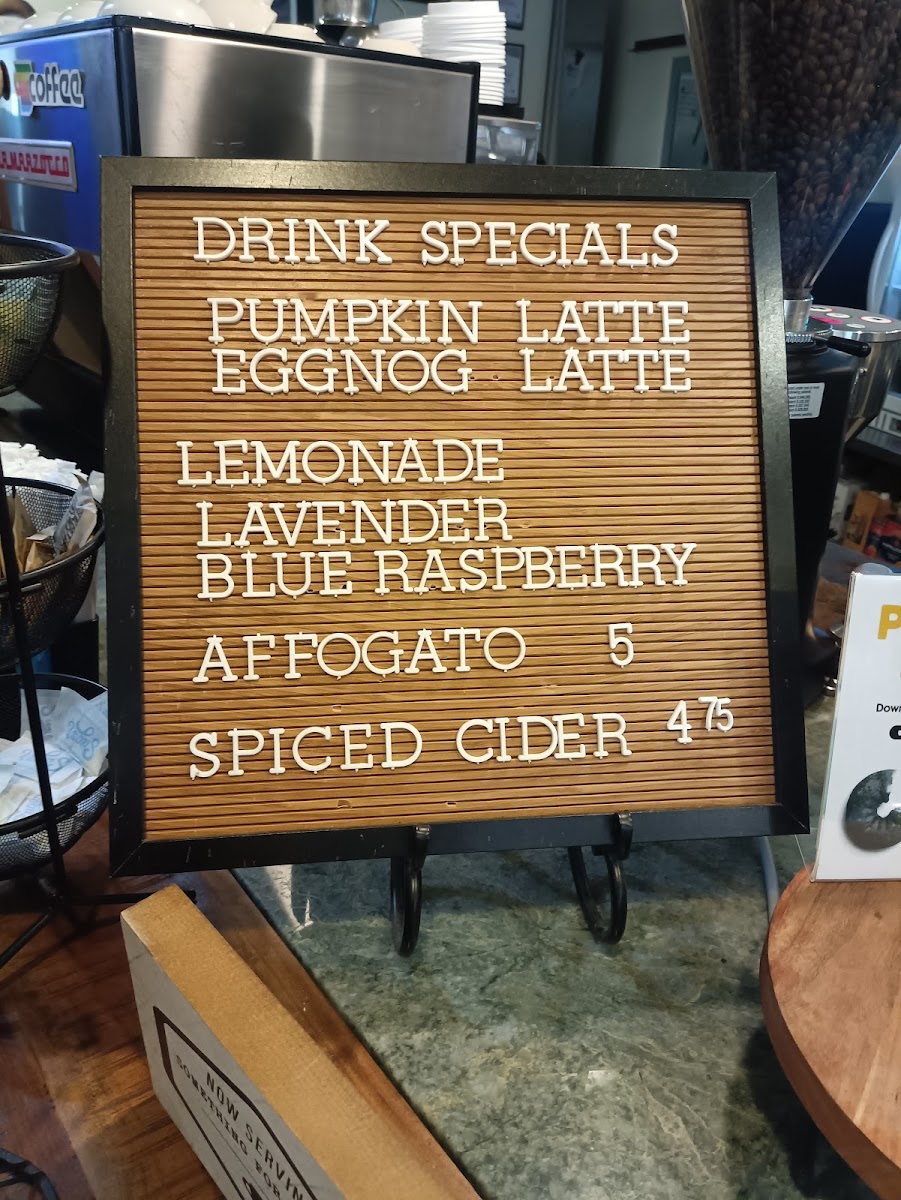 coffee
DRINK SPECIALS
PUMPKIN LATTE
EGGNOG LATTE
LEMONADE
LAVENDER
BLUE RASPBERRY
AFFOGATO 5
SPICED CIDER 4 75
P
Down
NOW SERVIN
SOMETHING FOR